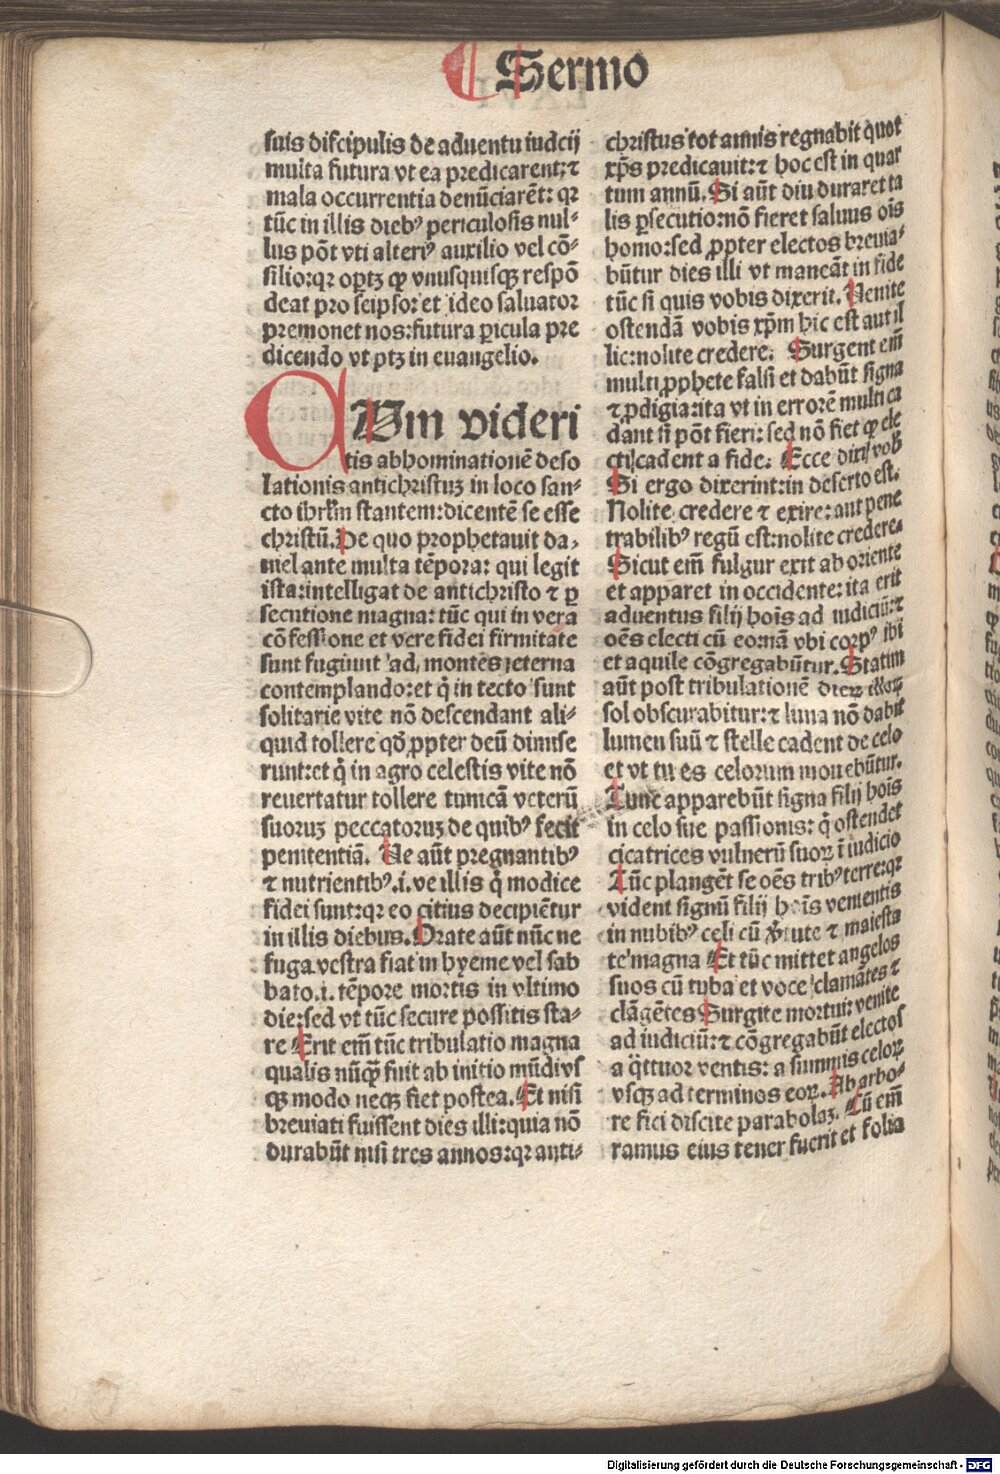 Sermo
suis discipulis de aduentu iudcij
multa futura vt ea predicarent:⁊
mala occurrentia denūciarēt: qꝛ
tūc in illis diebꝰ periculosis nul⸗
lus pōt vti alteriꝰ auxilio vel cō⸗
silio:qꝛ oꝑtꝫ ꝙ vnusquisqꝫ respō
deat pro seipso: et ideo saluator
premonet nos:futura ꝑicula pre
dicendo vt ptꝫ in euangelio.
CUm videri
tis abhominationē deso
lationis antichristuꝫ in loco san⸗
cto ihrlm̄ stantem:dicentē se esse
christū. De quo prophetauit da⸗
niel ante multa tēpora: qui legit
ista:intelligat de antichristo ⁊ ꝑ
secutione magna: tūc qui in vera
cōfessione et vere fidei firmitate
sunt fugiunt ad montes eterna
contemplando:et q̇ in tecto sunt
solitarie vite nō descendant ali⸗
quid tollere qd̄ ꝓpter deū dimise
runt:et q̇ in agro celestis vite nō
reuertatur tollere tunicā veterū
suoruꝫ peccatoruꝫ de quibꝰ fecit
penitentiā. Ve aūt pregnantibꝰ
⁊ nutrientibꝰ.i.ve illis q̇ modice
fidei sunt:qꝛ eo citius decipiētur
in illis diebus. Orate aūt nūc ne
fuga vestra fiat in hyeme vel sab
bato.i. tēpore mortis in vltimo
die:sed vt tūc secure possitis sta⸗
re Erit em̄ tūc tribulatio magna
qualis nūꝙ̄ fuit ab initio mūdi vs
qꝫ modo necqꝫ fiet postea. Et nisi
breuiati fuissent dies illi:quia nō
durabūt nisi tres annos:qꝛ anti⸗
christus tot annis regnabit quot
xp̄s predicauit:⁊ hoc est in quar
tum annū. Si aūt diu duraret ta
lis ꝑsecutio:nō fieret saluus oīs
homo:sed ꝓpter electos breuia⸗
būtur dies illi vt maneāt in fide
tūc si quis vobis dixerit. Venite
ostendā vobis xp̄m hic est aut il
lic:nolite credere. Surgent em̄
multi ꝓphete falsi et dabūt signa
⁊ ꝓdigia:ita vt in errorē multi ca
dant si pōt fieri: sed nō fiet ꝙ ele
cti cadent a fide. Ecce dixi vob̄
Si ergo dixerint:in deserto est.
Nolite credere ⁊ exire: aut pene
trabilibꝰ regū est:nolite credere.
Sicut em̄ fulgur exit ab oriente
et apparet in occidente: ita erit
aduentus filij hoīs ad iudiciū:⁊
oēs electi cū eo:nā vbi corpꝰ ibi
et aquile cōgregabūtur. Statim
aūt post tribulationē dieꝝ illoꝝ
sol obscurabitur:⁊ luna nō dabit
lumen suū ⁊ stelle cadent de celo
et vt tu es celorum mouebūtur.
Tunc apparebūt signa filij hoīs
in celo sue passionis: q̇ ostendet
cicatrices vulnerū suoꝝ ī iudicio
Tūc plangēt se oēs tribꝰ terre:qꝛ
vident signū filij hoīs venientis
in nubibꝰ celi cū v̄tute ⁊ maiesta
te magna Et tūc mittet angelos
suos cū tuba et voce clamātes ⁊
clāgētes Surgite mortui: venite
ad iudiciū:⁊ cōgregabūt electos
a q̈ttuor ventis: a summis celoꝝ
vsqꝫ ad terminos eoꝝ. Ab arbo⸗
re fici discite parabolaꝫ. Cū em̄
ramus eius tener fuerit et folia
Digitalisierung gefördert durch die Deutsche Forschungsgemeinschaft - DFG